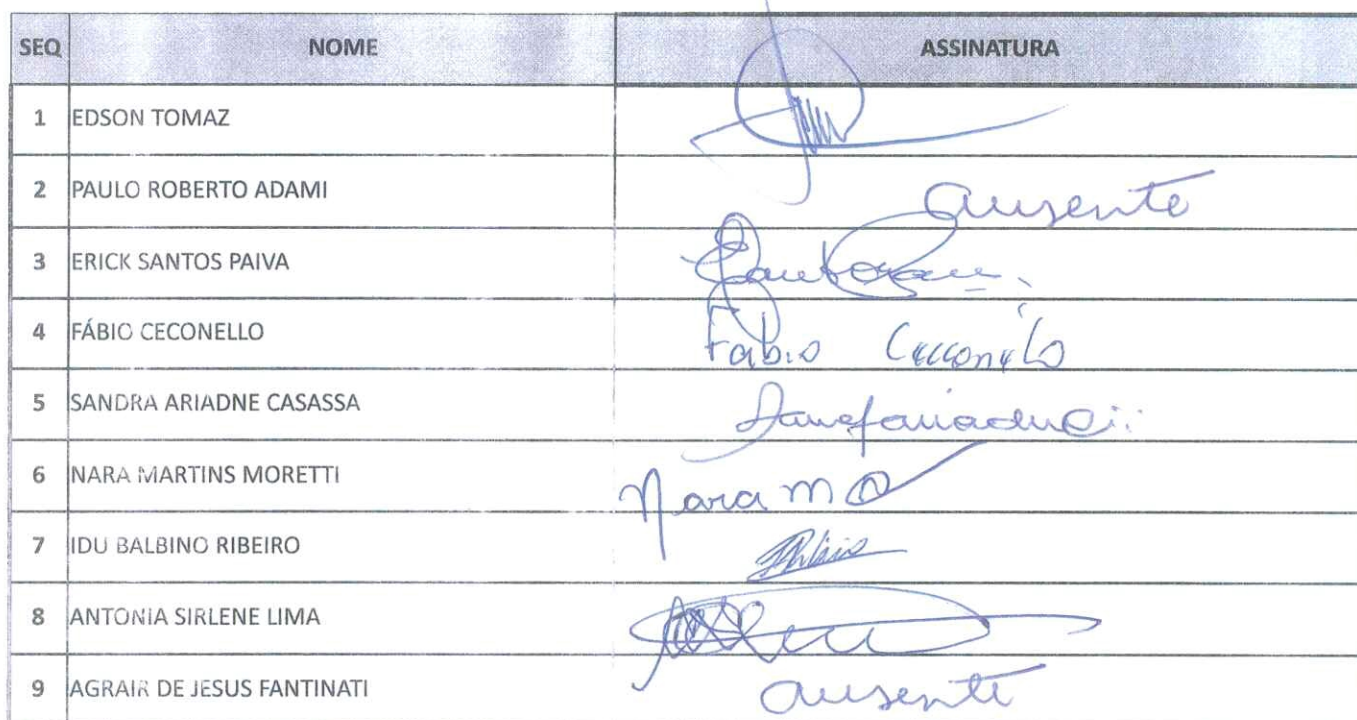 SEQ NOME ASSINATURA
1 EDSON TOMAZ
2 PAULO ROBERTO ADAMI ausente
3 ERICK SANTOS PAIVA
4 FÁBIO CECONELLO Fabio Ceconello
5 SANDRA ARIADNE CASASSA
6 NARA MARTINS MORETTI Nara M
7 IDU BALBINO RIBEIRO
8 ANTONIA SIRLENE LIMA
9 AGRAIR DE JESUS FANTINATI ausente